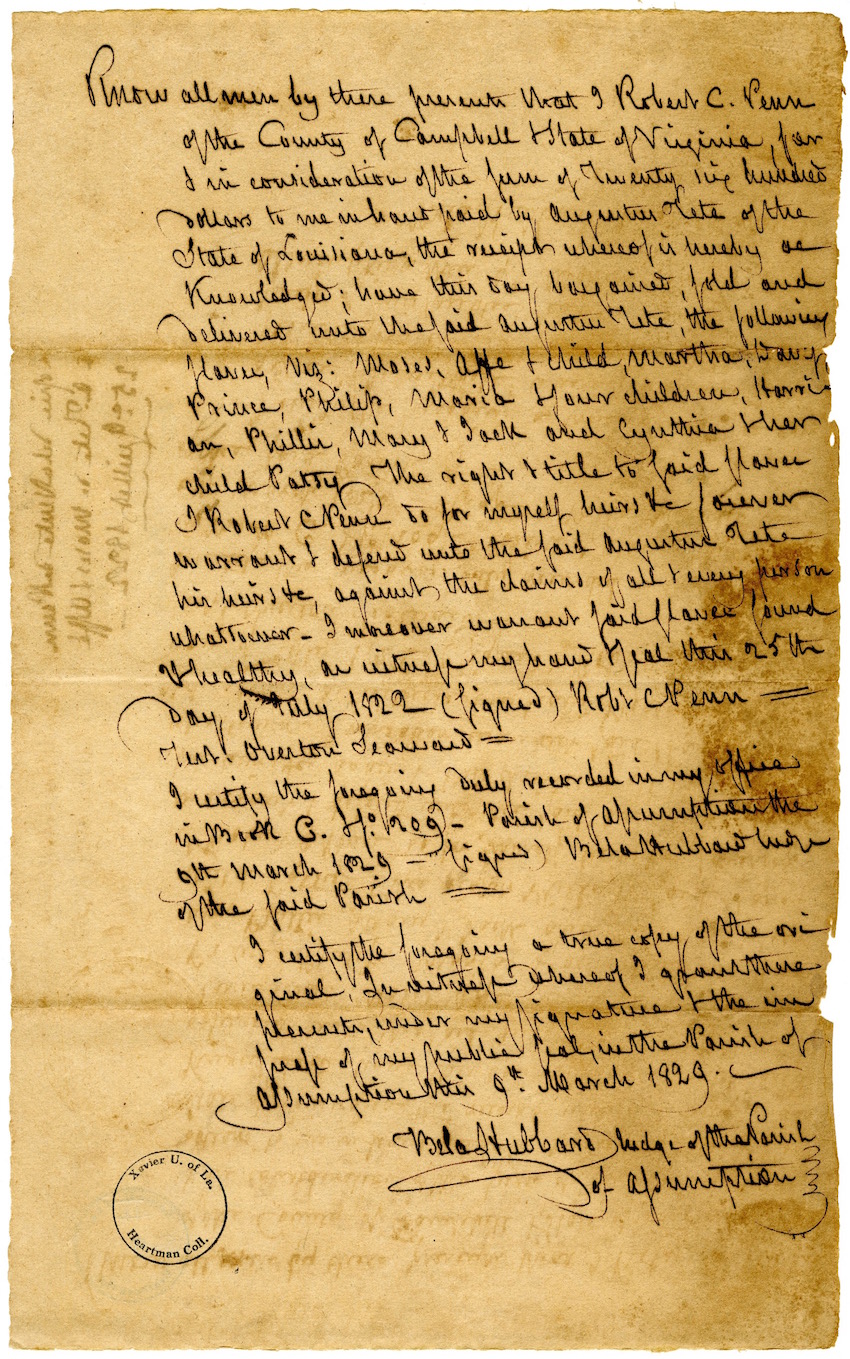 Know all men by these presents that I Robert C. Penn
of the County of Campbell & State of Virginia, for
& in consideration of the sum of Twenty six hundred
dollars to me in hand paid by Augustin Tete of the
State of Louisiana, the receipt whereof is hereby ac
Knowledged; have this day bargained, sold and
delivered unto the said Augustin Tete, the following
slaves, Viz: Moses, Affe & child, Martha, Davy,
Prince, Philip, Maria & four children, Harri
an, Phillis, Mary & Jack and Cynthia & her
child Patsy The right & title to said slaves
I Robert C Penn do for myself heirs &c forever
warrant & defend unto the said Augustin Tete
his heirs &c, against the claims of all & every person
whatsoever - I moreover warrant said slaves sound
& healthy, as witness my hand & seal this 25th
Day of July 1822 (signed) Robt C Penn
Test. Overton Seaward
I certify the foregoing duly recorded in my office
in Book C. No. 209 - Parish of Assumption the
9th March 1829 - (signed) Bela Hubbard Judge
of the said Parish
I certify the foregoing a true copy of the ori
ginal, In witness whereof I grant these
presents, under my signature & the im
press of my public seal, in the Parish of
Assumption this 9th March 1829.
Bela Hubbard Judge of the Parish
of Assumption
Xavier U. of La.
Heartman Coll.